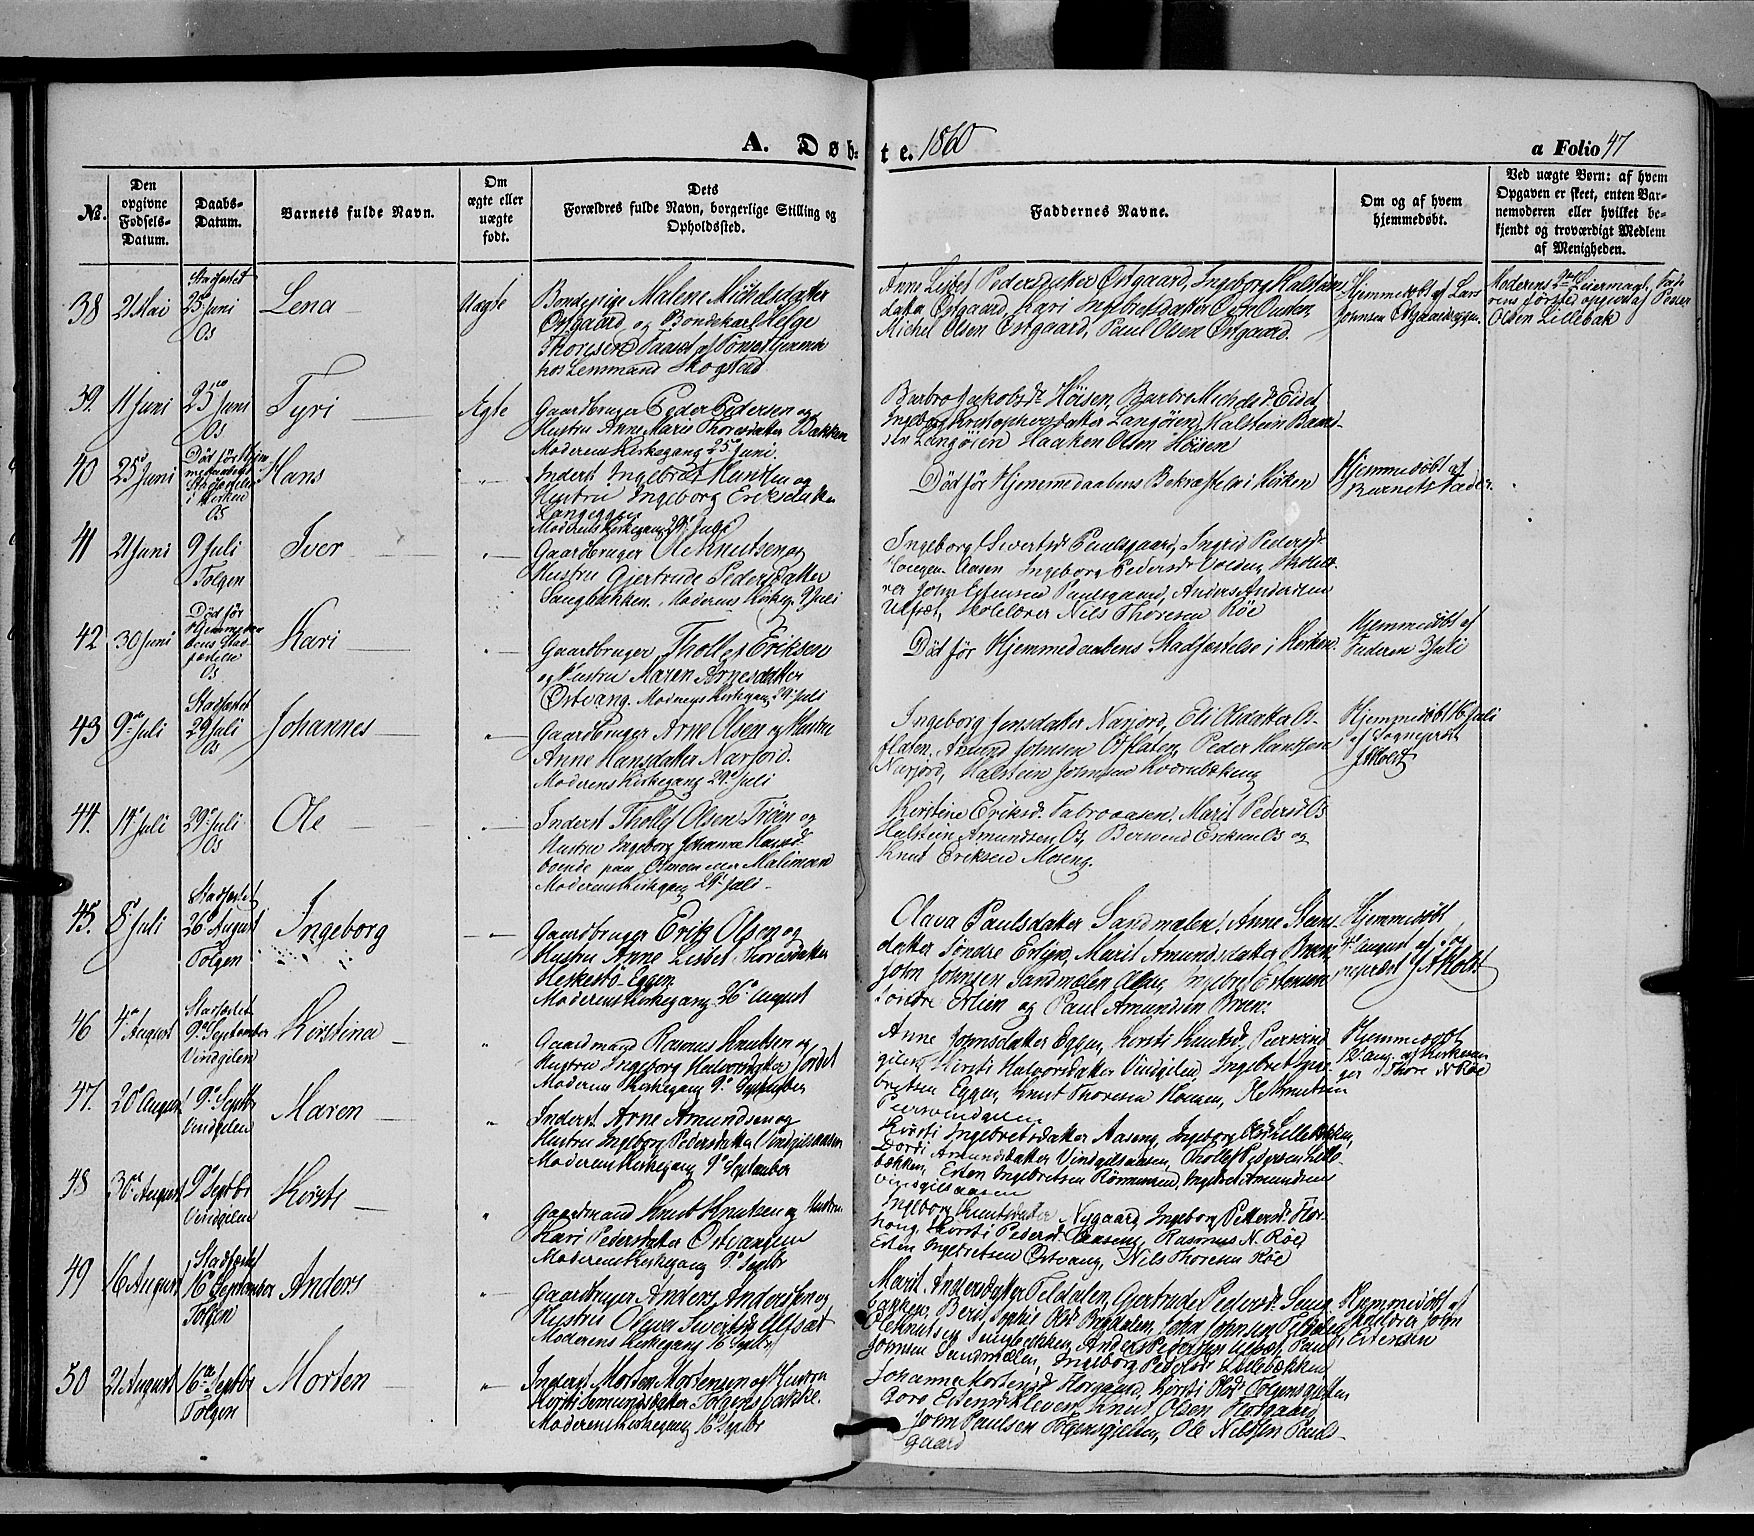 A. Døb-
te. 1860
a Folio 47
No.
Den opgivne Fødsels-Datum.
Daabs-Datum.
Barnets fulde Navn.
Om ægte eller uægte født.
Dets
Forældres fulde Navn, borgerlige Stilling og
Opholdssted.
Faddernes Navne.
Om og af hvem
hjemmedøbt.
Ved uægte Børn: af hvem
Opgaven er skeet, enten Bar-
nemoderen eller hvilket be-
kjendt og troværdigt Medlem
af Menigheden.
38
21 Mai
Stadfæstet
25 Juni
Os
Lena
Uægte
Bondepige Malene Michelsdatter
Østgaard og Bondekarl Helge
Thoresen
hos Lensmand Skogstad
Anne Lisbet Pedersdatter Østgaard, Ingeborg Halstein
datter Østgaard, Kari Ingebretsdatter
Michel Olsen Østgaard, Paul Olsen Østgaard.
Hjemmedøbt af Lars
Johnsen
Moderens 2det Leiermaal, Fade-
rens første opgivet af Peder
Olsen Lillebak
39.
11 Juni
25de Juni
Os
Tyri
Ægte
Gaardbruger Peder Pedersen og
Hustru Anne Marie Thoresdatter Bakken
Moderens Kirkegang 25de Juni.
Barbro Jakobsdt. Høisen, Barbro Michelsdt
Ingeborg Kristophersdatter Langøien, Halstein
Langøien Haaken Olsen Høisen
40
25de Juni
Død før Hjem-
medaabens
Stadfæstelse
i Kirken
Os
Hans
Inderst Ingebret Hansen og
Hustru Ingeborg Eriksdatter
Langeggen
Moderens Kirkegang 29de Juli
Død før Hjemmedaabens Bekræftelse i Kirken
Hjemmedøbt af
Barnets Fader.
41
21 Juni
9 Juli
Tolgen
Iver
Gaardbruger Ole Knutsen og
Hustru Gjertrude Pedersdatter
Saugbakken. Moderens Kirkeg. 9 Juli
Ingeborg Sivertsdt Paulsgaard, Ingrid Pedersdt
Haugen Aasen Ingeborg Pedersdt Volden, Skolelæ-
rer John Estensen Paulsgaard, Anders Andersen
Ulfsæt, Skolelærer Nils Thoresen Røe
42
30 Juni
Død før
Hjemmedaa-
bens Stad-
fæstelse
Os
Kari
Gaardbruger Tholf Eriksen
og Hustru Maren Arnesdatter
Østvang. Moderens Kirkegang 29 Juli
Død før Hjemmedaabens Stadfæstelse i Kirken.
Hjemmedøbt af
Faderen 3 Juli
43
9de Juli
Stadfæstet
29 Juli
Os
Johannes
Gaardbruger Arne Olsen og Hustru
Anne Hansdatter Narjord.
Moderens Kirkegang 29de Juli
Ingeborg Jonsdatter Narjord, Eli Olsdatter Os-
flaten. Amund Johnsen Osflaten, Peder Hanssen
Narjord, Halstein Johnsen Kværnbækeng
Hjemmedøbt 16 Juli
af Sogneprest
J. A. Holst
44.
14de Juli
29de Juli
Os
Ole
Inderst Tholf Olsen Trøen og
Hustru Ingeborg Johanna Hansd.
boende paa Osmoen eller Malmoen
Moderens Kirkegang 29de Juli
Kirstine Eriksd. Fabroaasen, Marit Pedersd. Os
Halstein Amundsen Os, Berwend Eriksen Os og
Knut Eriksen Moseng.
45.
8de Juli
Stadfæstet
26de August
Tolgen
Ingeborg
Gaardbruger Erik Olsen og
Hustru Anne Lisbet Thoresdatter
Eggen
Moderens Kirkegang 26de August
Olava Paulsdatter Sandmælen, Anne
datter Søndre Erlien, Marit Amundsdatter Bræn
John Johnsen Sandmælen Ingebret Estensen
Søndre Erlien og Paul Amundsen Bræn.
Hjemmedøbt
4de August af
J. A. Holst
46
4de August
Stadfæstet
9de September
Vindgilen
Kirstina
Gaardmand Rasmus Knutsen og
Hustru Ingeborg Halvorsdatter
Moderens Kirkegang 9de September
Anne Johnsdatter Eggen, Kirsti Knutsd.
Kirsti Halvorsdatter Vindgilen, Ingebret Inge-
bretsen Eggen, Knut Thoresen Haugen, Ole Knutsen
Hjemmedøbt
12 aug. af Kirkesan-
ger Thore N. Røe
47.
20de August
9de Septbr
Vindgilen
Maren
Inderst Arne Amundsen og
Hustru Ingeborg Pedersdatter Vindgilsaasen
Moderens Kirkegang 9de September
Kirsti Ingebretsdatter Aaseng, Ingeborg Olsd. Lillebækken,
Dordi Amundsdatter Vindgilsaasen, Tholf Pedersen Lille-
bækken, Esten Ingebretsen Rømoen, Ingebret Amundsen
Vindgilsaasen
48
30de August
9 Septbr
Vindgilen
Kirsti
Gaardmand Knut Knutsen og Hustru
Kari Pedersdatter Østvangen
Moderens Kirkegang 9de Septbr
Ingeborg Knutsdatter Nygaard, Ingeborg Pettersd.
Kirsti Pedersd. Aaseng, Rasmus N. Røe
Esten Ingebretsen Østvang, Nils Thoresen Røe
49
16 August
Stadfæstet
16de September
Tolgen
Anders
Gaardbruger Anders Anderssen og
Hustru Olava Sivertsdt Ulfsæt
Moderens Kirkegang 16 Septbr
Marit Andersdatter Feldalen, Gjertrude Pedersdt. Saug-
bakken, Berit Sophie Olsdt John Johnsen Feldalen
Ole Knutsen Saugbakken, Anders Pedersen Ulfsæt, Paul
Johnsen Sandmælen, Ingeborg Pedersdt Lillebækken
Hjemmedøbt af
Skolelærer John
Estensen
50
21 August
16de Septbr
Tolgen
Morten
Inderst Morten Mortensen og Hustru
Kirsti Simensdatter Tolgensbakke.
Moderens Kirkegang 16 Septbr
Johanna Mortensdt Horgaard, Kirsti Olsdt Tolgensgjelten
Goro Estensdt Kleven, Knut Olsen Horgaard,
John Paulsen Tolgensgjelten, Ole Nilssen Pauls-
gaard